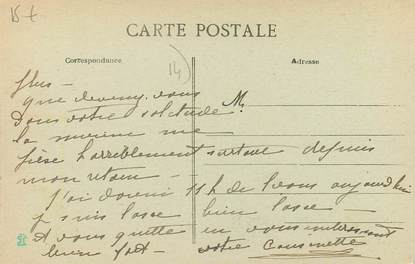 15 t
CARTE POSTALE
Correspondance
Adresse
14
que devenez vous
Dans votre solitude
M
la mienne me
pèse horriblement surtout depuis
mon retour -
J'ai dormi 11 h de temps aujourd'hui
je suis lasse bien lasse
Et vous quitte en vous embrassant
bien fort - votre